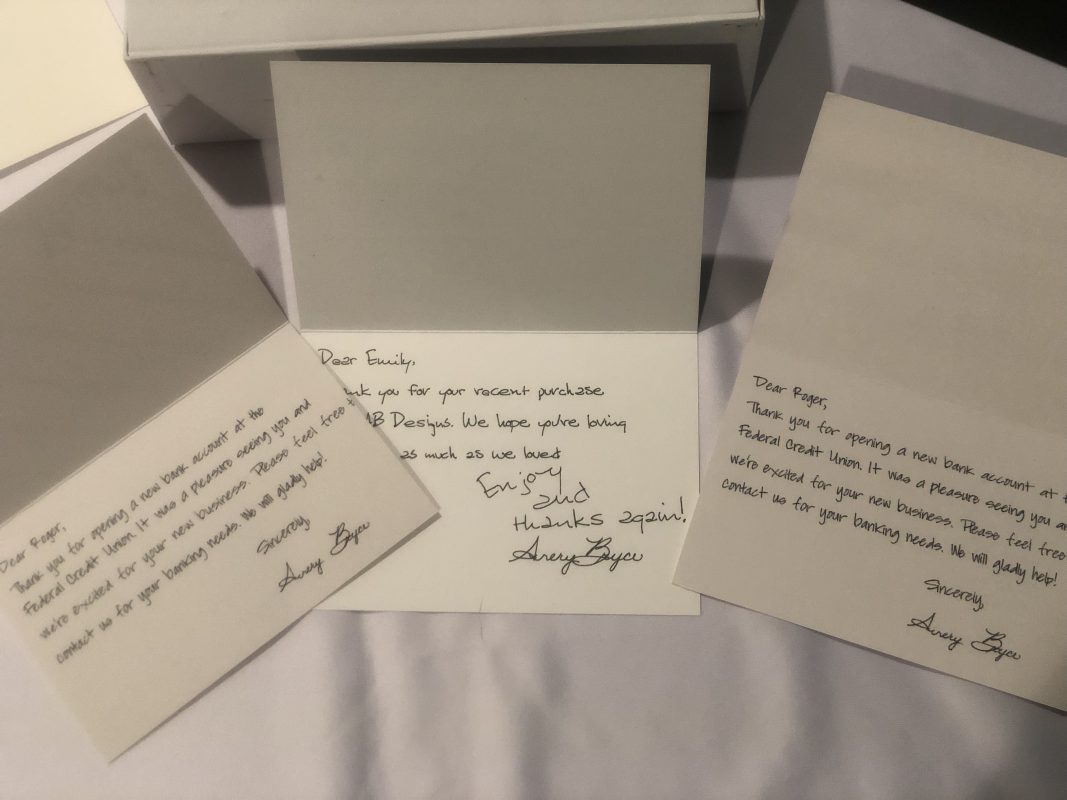 Dear Roger,
Thank you for opening a new bank account at the
Federal Credit Union. It was a pleasure seeing you and
we're excited for your new business. Please feel free
contact us for your banking needs. We will gladly help!
Sincerely,
Avery Bryce
Dear Emily,
you for your recent purchase
Designs. We hope you're loving
as much as we loved
Enjoy
and
thanks again!
Avery Bryce
Dear Roger,
Thank you for opening a new bank account at
Federal Credit Union. It was a pleasure seeing you
we're excited for your new business. Please feel free
contact us for your banking needs. We will gladly help!
Sincerely,
Avery Bryce